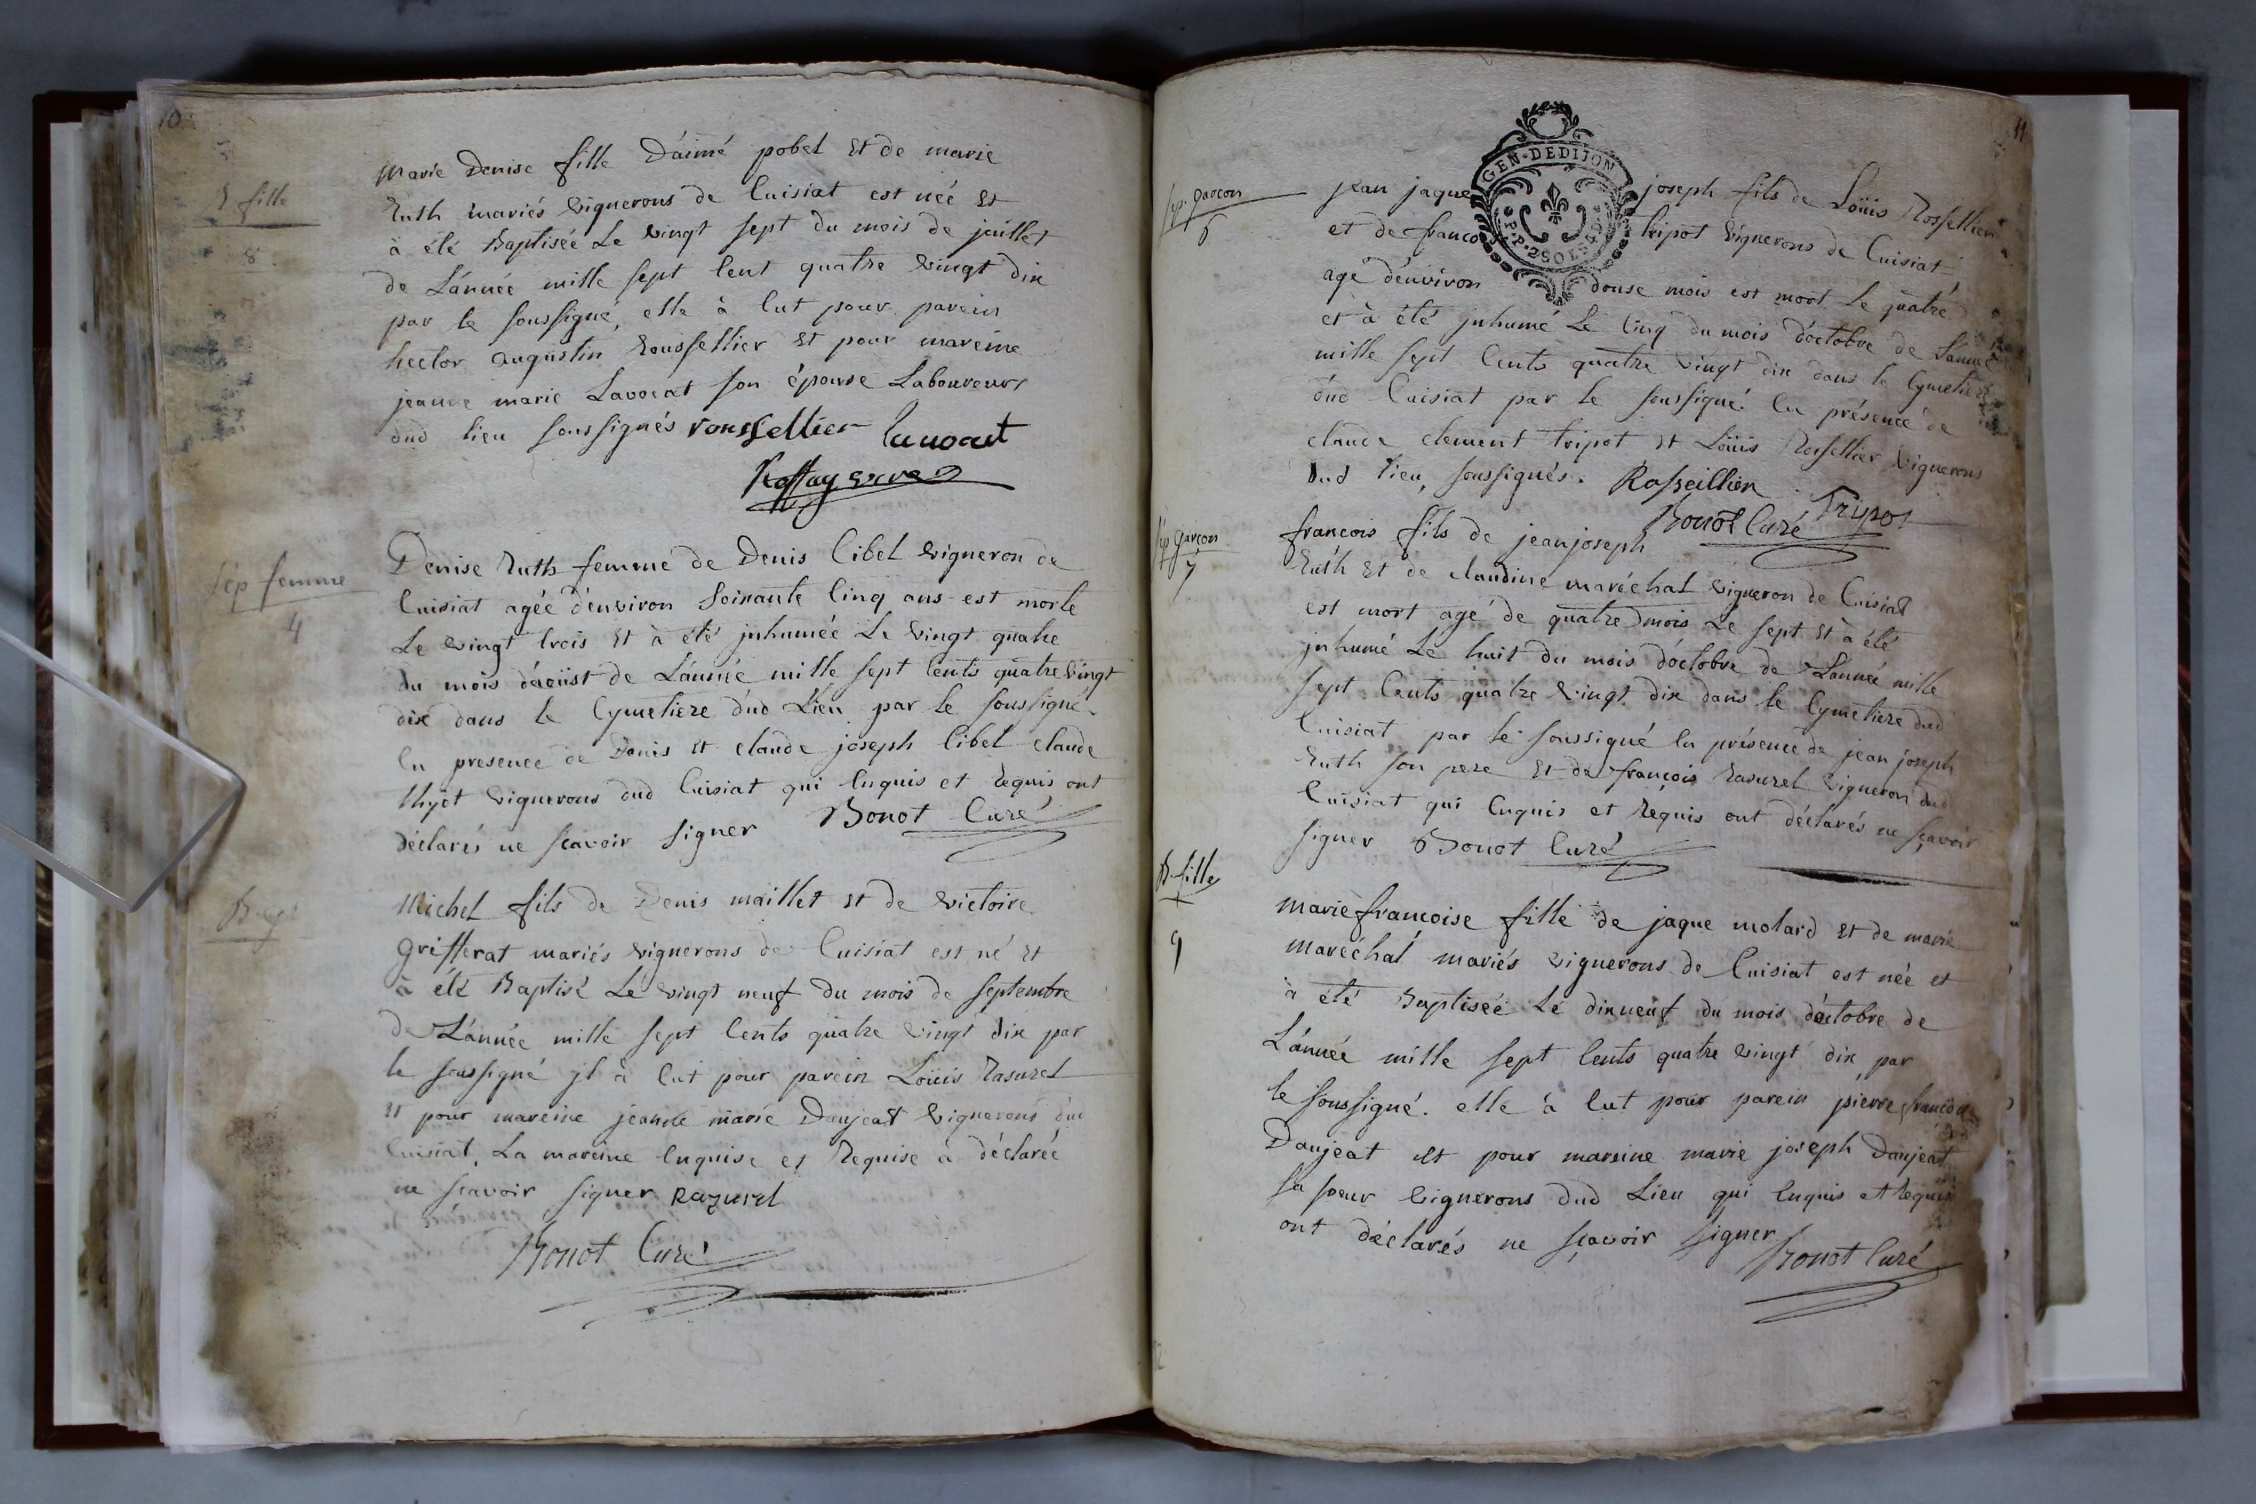 10
fille
8
Marie Denise fille D'aimé pobel Et de marie
Ruth mariés vignerons de Cuisiat est née Et
à été Baptisée Le vingt sept du mois de juillet
de L'année mille sept Cent quatre vingt dix
par le soussigné, elle à Eut pour parein
hector augustin Roussellier Et pour mareine
jeanne marie Lavocat son épouse Laboureurs
dud lieu soussignés roussellier Lavocat
sép femme
4
Denise Ruth femme de Denis Cibel vigneron de
Cuisiat agée d'environ soixante Cinq ans est morte
Le vingt trois Et à été jnhumée Le vingt quatre
du mois d'aoüst de L'année mille sept Cents quatre vingt
dix dans le Cymetiere dud Lieu par le soussigné
En presence de Denis Et claude joseph Cibel claude
vignerons dud Cuisiat qui Enquis et Requis ont
déclarés ne scavoir signer Bonot Curé
Michel fils de Denis maillet Et de victoire
Grifferat mariés vignerons de Cuisiat est né Et
à été Baptisé Le vingt neuf du mois de septembre
de L'année mille sept Cents quatre vingt dix par
le soussigné jl à Eut pour parein Loüis Rasurel
Et pour mareine jeanne marie Danjeat vignerons dud
Cuisiat. La mareine Enquise et Requise a déclarée
ne scavoir signer Razurel
Bonot Curé
11
GEN·DEDIJON
sép. garcon
6
jean jaque joseph fils de Loüis Rossellier
et de franco tripot vignerons de Cuisiat
agé d'environ douse mois est mort Le quatre
et à été jnhumé Le Cinq du mois d'octobre de L'année
mille sept Cents quatre vingt dix dans le Cymetiere
dud Cuisiat par le soussigné En présence de
claude clement tripot Et Loüis Rossellier vignerons
dud Lieu, soussignés. Rosseillier Tripot
Bonot Curé
sép garcon
7
francois fils de jeanjoseph
Ruth Et de claudine maréchal vigneron de Cuisiat
est mort agé de quatre mois Le sept Et à été
jnhumé Le huit du mois d'octobre de L'année mille
sept Cents quatre vingt dix dans le Cymetiere dud
Cuisiat par le soussigné En présence de jean joseph
Ruth son pere Et de francois Rasurel vigneron dud
Cuisiat qui Enquis et Requis ont déclarés ne sçavoir
signer Bonot Curé
B. fille
9
Marie francoise fille de jaque molard Et de marie
maréchal mariés vignerons de Cuisiat est née et
à été Baptiseé Le dix neuf du mois d'octobre de
L'année mille sept Cents quatre vingt dix par
le soussigné. elle à Eut pour parein pierre francois
Danjeat Et pour mareine marie joseph Danjeat
sa soeur vignerons dud Lieu qui Enquis et Requis
ont déclarés ne sçavoir signer
Bonot Curé